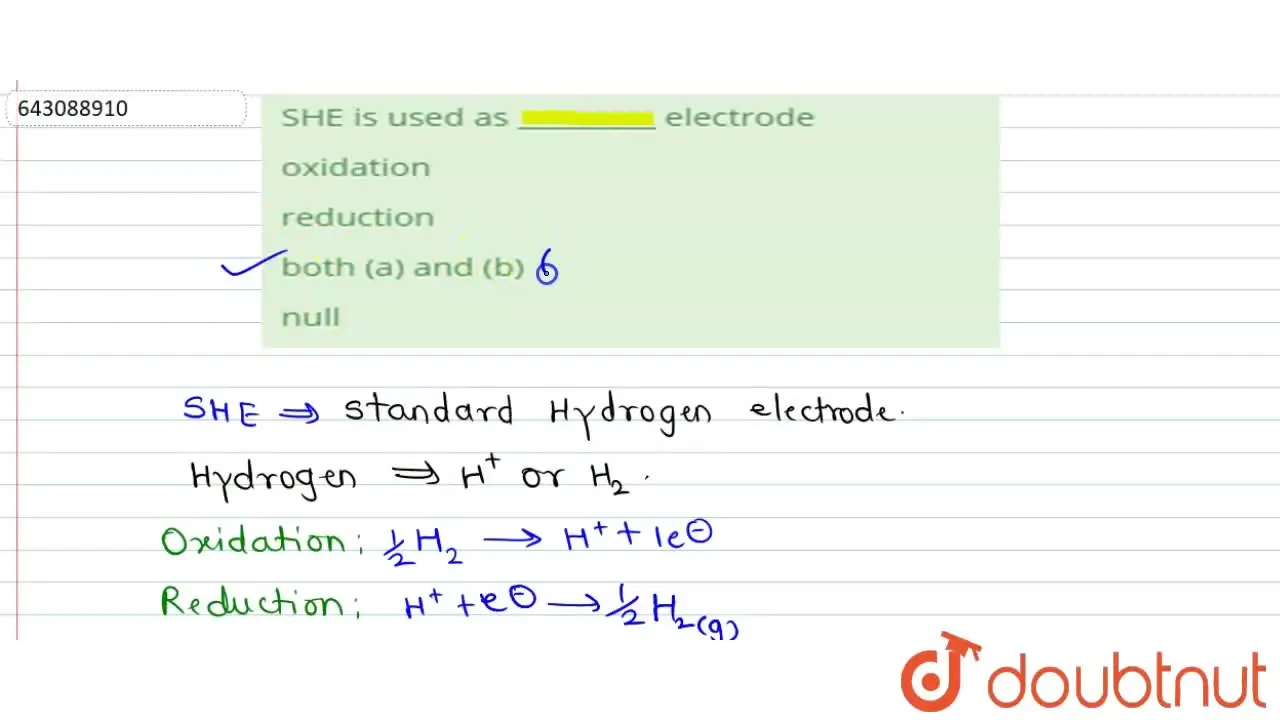 643088910
SHE is used as __________ electrode
oxidation
reduction
both (a) and (b)
null
SHE ⇒ Standard Hydrogen electrode.
Hydrogen ⇒ H⁺ or H₂.
Oxidation: ½ H₂ → H⁺ + 1e⊖
Reduction: H⁺ + e⊖ → ½ H₂(g)
doubtnut